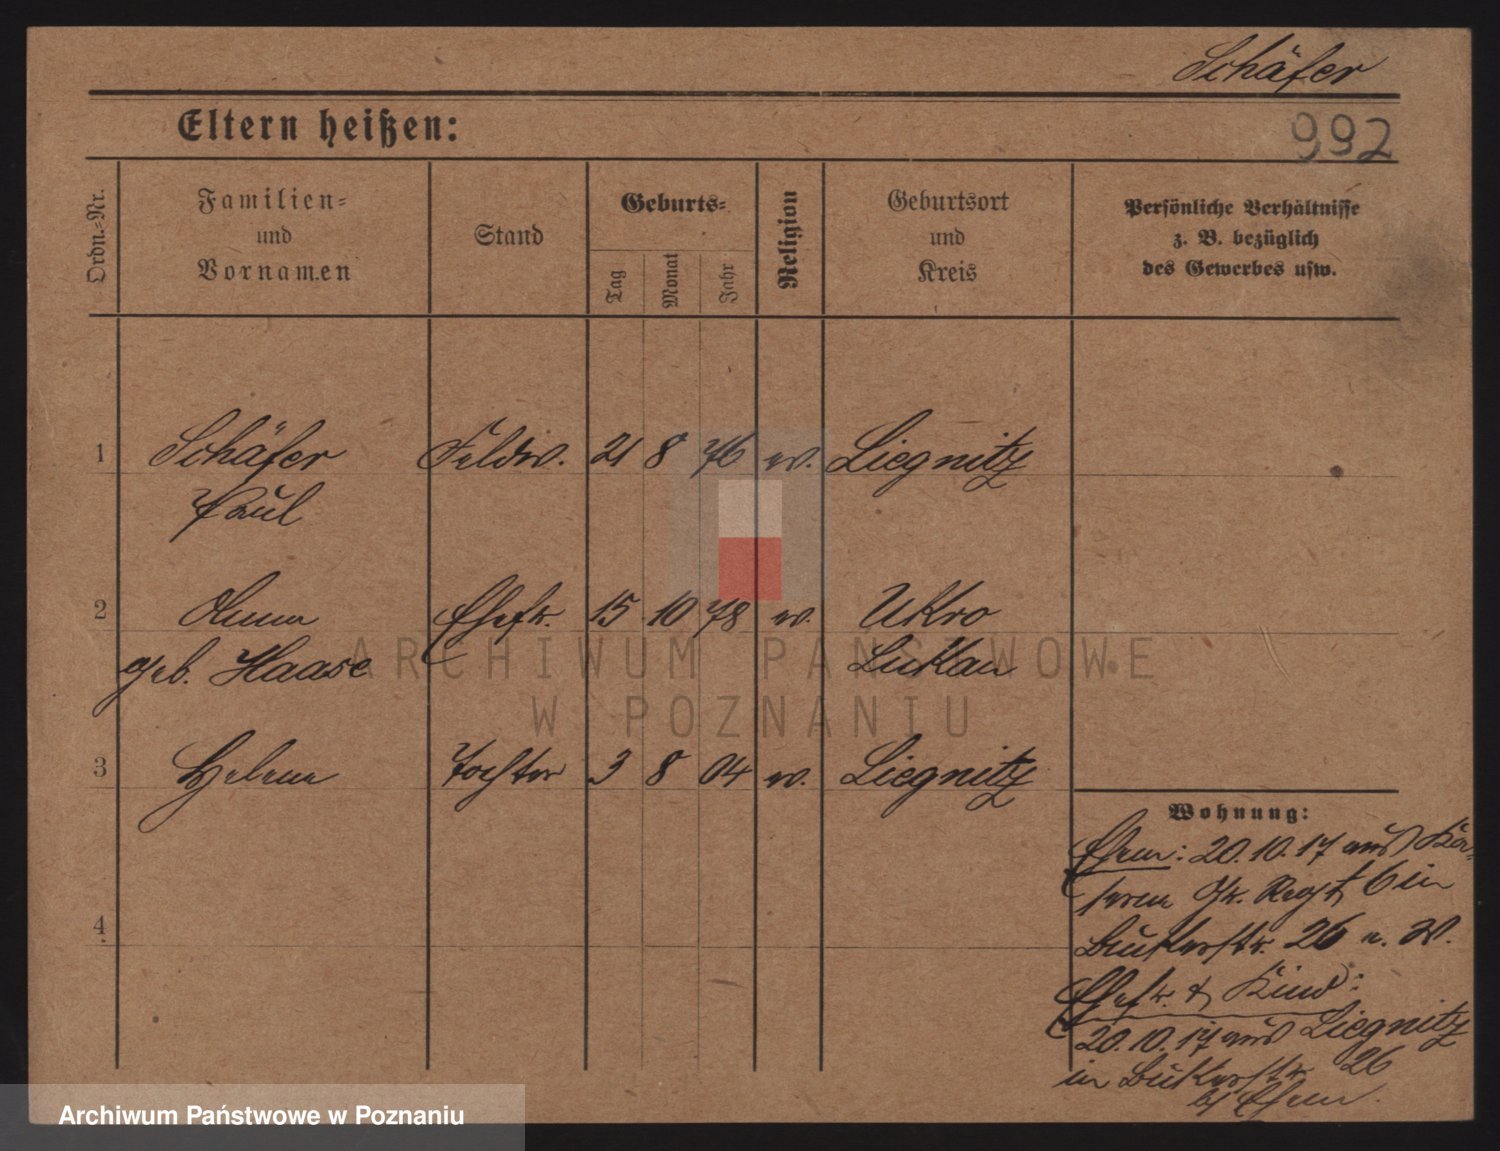 Schäfer
Eltern heißen:
992
Ordn.-Nr.
Familien-
und
Vornamen
Stand
Geburts-
Tag
Monat
Jahr
Religion
Geburtsort
und
Kreis
Persönliche Verhältnisse
z. B. bezüglich
des Gewerbes usw.
1 Schäfer Feldw. 21 8 76 ev. Liegnitz
Paul
2 Anna Ehefr. 15 10 78 ev. Ukro
geb. Haase Luckau
3 Helene Tochter 3 8 04 ev. Liegnitz
4
Wohnung:
Ehem: 20.10.17 aus
6 in
Bukerstr. 26 n. W.
Ehefr. & Kind:
20.10.17 aus Liegnitz
in Bukerstr. 26
b/ Ehem.
ARCHIWUM PAŃSTWOWE
W POZNANIU
Archiwum Państwowe w Poznaniu